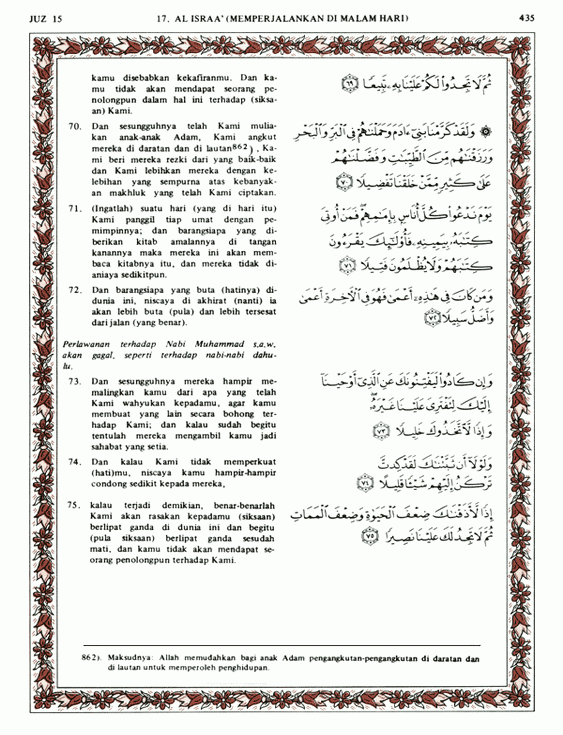 JUZ 15 17. AL ISRAA' (MEMPERJALANKAN DI MALAM HARI) 435
kamu disebabkan kekafiranmu. Dan ka-
mu tidak akan mendapat seorang pe-
nolongpun dalam hal ini terhadap (siksa-
an) Kami.
ثُمَّ لَا تَجِدُوا لَكُمْ عَلَيْنَا بِهِ تَبِيعًا ٦٩
70. Dan sesungguhnya telah Kami mulia-
kan anak-anak Adam, Kami angkut
mereka di daratan dan di lautan862), Ka-
mi beri mereka rezki dari yang baik-baik
dan Kami lebihkan mereka dengan ke-
lebihan yang sempurna atas kebanyak-
an makhluk yang telah Kami ciptakan.
۞ وَلَقَدْ كَرَّمْنَا بَنِي آدَمَ وَحَمَلْنَاهُمْ فِي الْبَرِّ وَالْبَحْرِ
وَرَزَقْنَاهُمْ مِنَ الطَّيِّبَاتِ وَفَضَّلْنَاهُمْ
عَلَى كَثِيرٍ مِمَّنْ خَلَقْنَا تَفْضِيلًا ٧٠
71. (Ingatlah) suatu hari (yang di hari itu)
Kami panggil tiap umat dengan pe-
mimpinnya; dan barangsiapa yang di-
berikan kitab amalannya di tangan
kanannya maka mereka ini akan mem-
baca kitabnya itu, dan mereka tidak di-
aniaya sedikitpun.
يَوْمَ نَدْعُوا كُلَّ أُنَاسٍ بِإِمَامِهِمْ فَمَنْ أُوتِيَ
كِتَابَهُ بِيَمِينِهِ فَأُولَئِكَ يَقْرَءُونَ
كِتَابَهُمْ وَلَا يُظْلَمُونَ فَتِيلًا ٧١
72. Dan barangsiapa yang buta (hatinya) di-
dunia ini, niscaya di akhirat (nanti) ia
akan lebih buta (pula) dan lebih tersesat
dari jalan (yang benar).
وَمَنْ كَانَ فِي هَذِهِ أَعْمَى فَهُوَ فِي الْآخِرَةِ أَعْمَى
وَأَضَلُّ سَبِيلًا ٧٢
Perlawanan terhadap Nabi Muhammad s,a,w,
akan gagal, seperti terhadap nabi-nabi dahu-
lu.
73. Dan sesungguhnya mereka hampir me-
malingkan kamu dari apa yang telah
Kami wahyukan kepadamu, agar kamu
membuat yang lain secara bohong ter-
hadap Kami; dan kalau sudah begitu
tentulah mereka mengambil kamu jadi
sahabat yang setia.
وَإِنْ كَادُوا لَيَفْتِنُونَكَ عَنِ الَّذِي أَوْحَيْنَا
إِلَيْكَ لِتَفْتَرِيَ عَلَيْنَا غَيْرَهُ
وَإِذًا لَاتَّخَذُوكَ خَلِيلًا ٧٣
74. Dan kalau Kami tidak memperkuat
(hati)mu, niscaya kamu hampir-hampir
condong sedikit kepada mereka,
وَلَوْلَا أَنْ ثَبَّتْنَاكَ لَقَدْ كِدْتَ
تَرْكَنُ إِلَيْهِمْ شَيْئًا قَلِيلًا ٧٤
75. kalau terjadi demikian, benar-benarlah
Kami akan rasakan kepadamu (siksaan)
berlipat ganda di dunia ini dan begitu
(pula siksaan) berlipat ganda sesudah
mati, dan kamu tidak akan mendapat se-
orang penolongpun terhadap Kami.
إِذًا لَأَذَقْنَاكَ ضِعْفَ الْحَيَوٰةِ وَضِعْفَ الْمَمَاتِ
ثُمَّ لَا تَجِدُ لَكَ عَلَيْنَا نَصِيرًا ٧٥
862). Maksudnya: Allah memudahkan bagi anak Adam pengangkutan-pengangkutan di daratan dan
di lautan untuk memperoleh penghidupan.